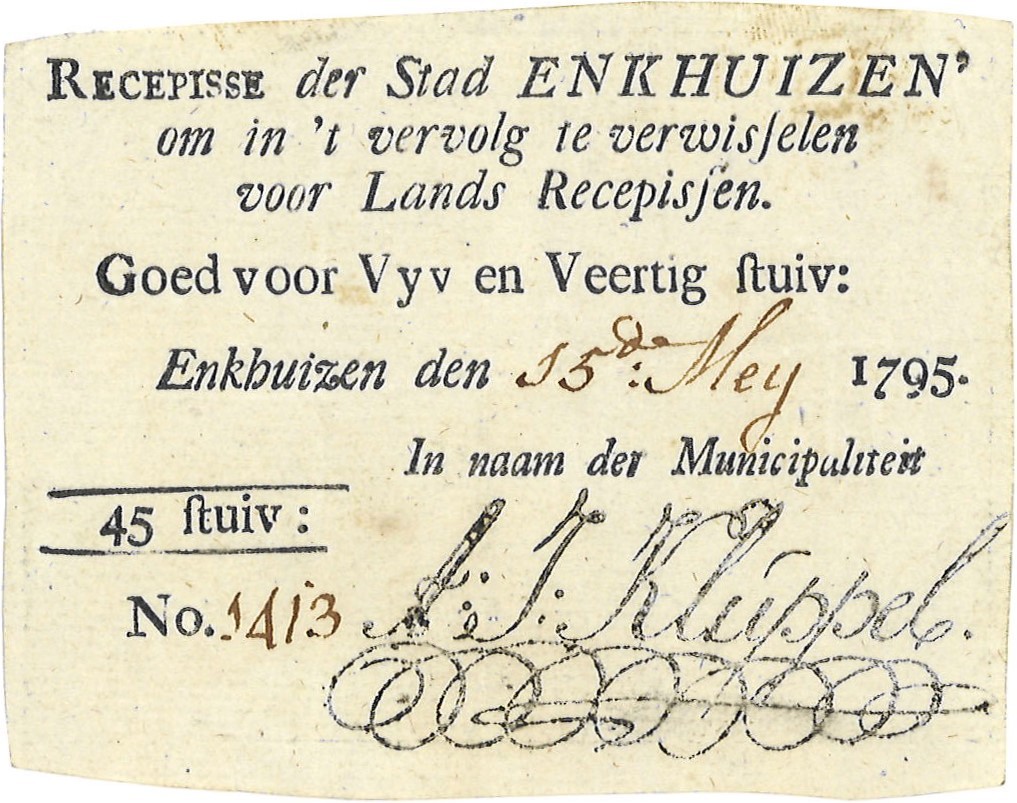 RECEPISSE der Stad ENKHUIZEN’
om in 't vervolg te verwisſelen
voor Lands Recepisſen.
Goed voor Vyv en Veertig ſtuiv:
Enkhuizen den 15de: Mey 1795.
In naam der Municipaliteit
45 ſtuiv:
No. 1413
A: J: Klúppel.